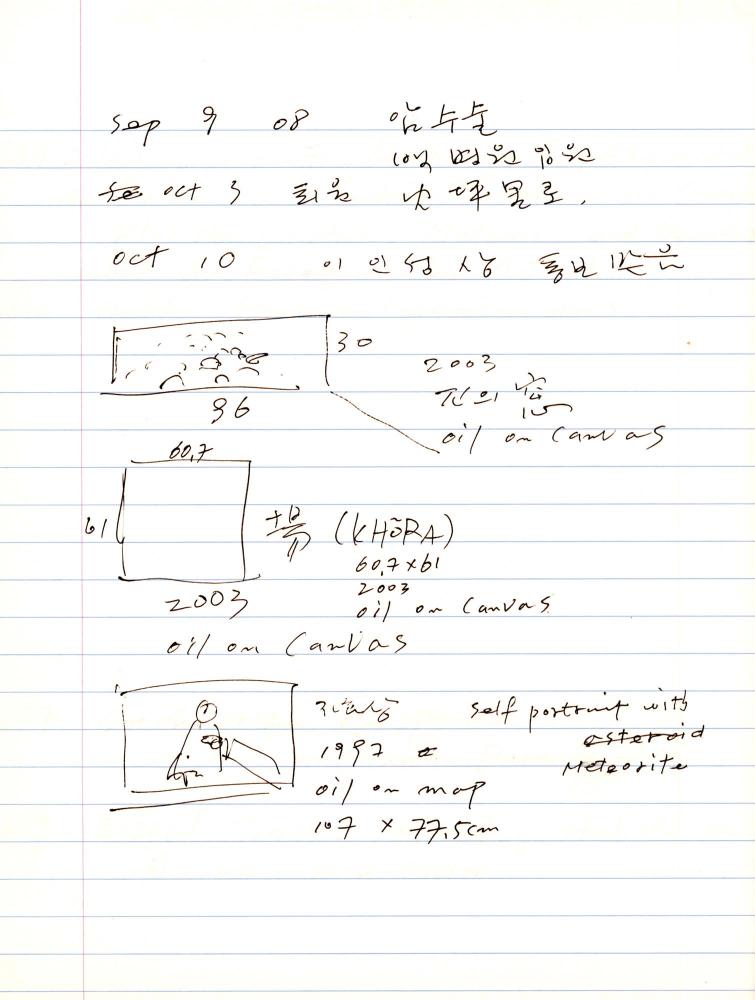 Sep 9 08 암수술
병원 입원
Oct 3 퇴원
Oct 10 이인성상 통보 받음
30
96
2003
oil on canvas
60.7
61
場 (KHŌRA)
60.7 x 61
2003
oil on canvas
2003
oil on canvas
자화상
1997
oil on map
107 x 77.5cm
Self portrait with
asteroid
Meteorite